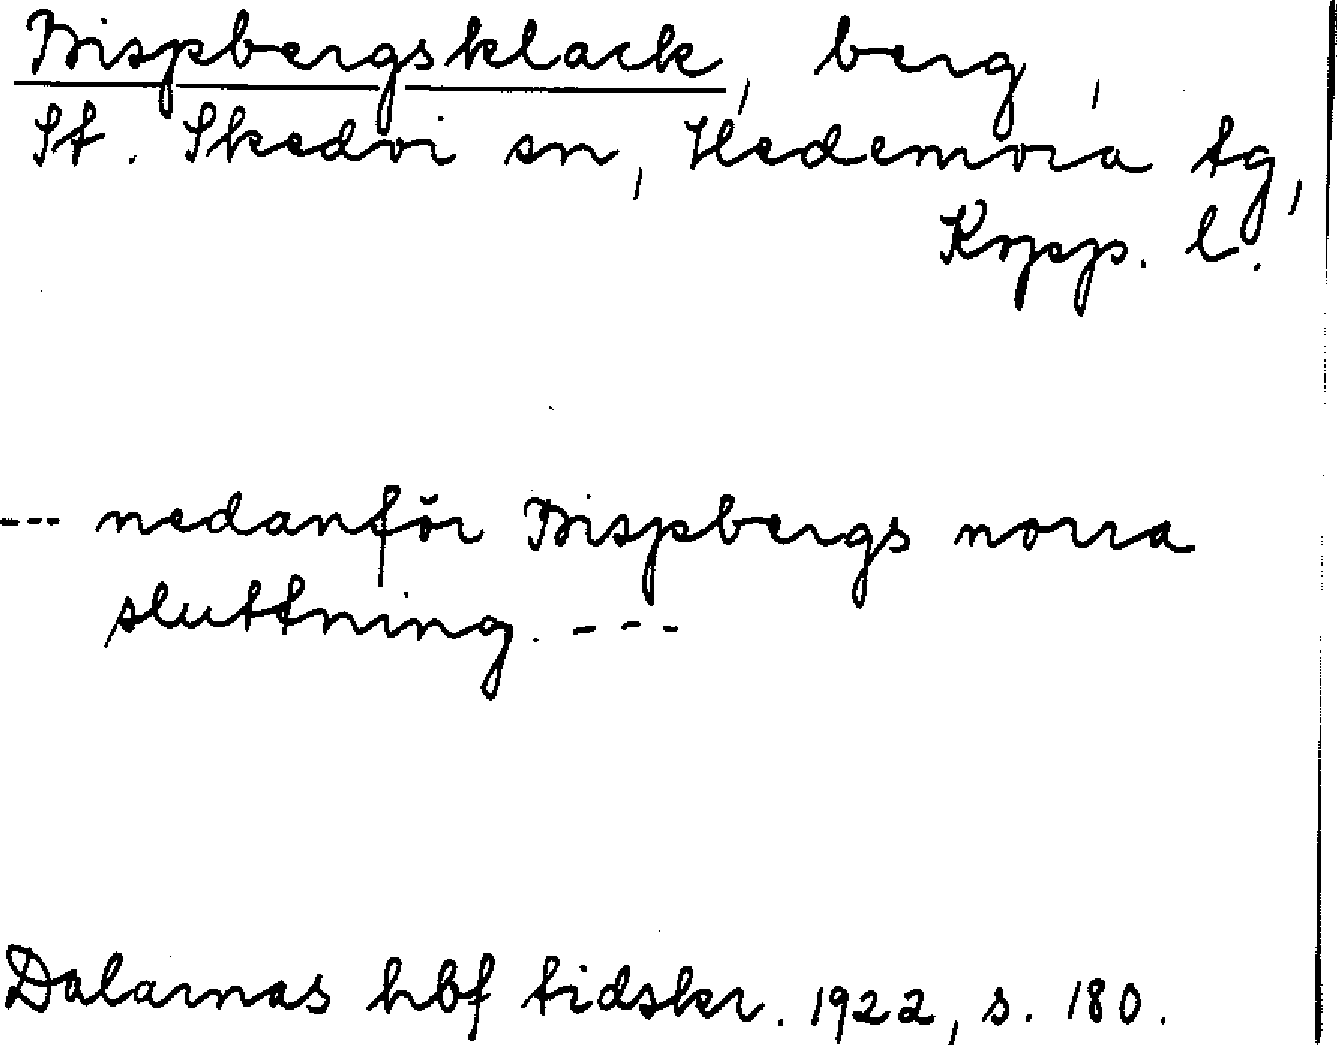 Bispbergsklack, berg,
St. Skedvi sn, Hedemora tg,
Kopp. l.
--- nedanför Bispbergs norra
sluttning. ---
Dalarnas hbf tidskr. 1922, s. 180.